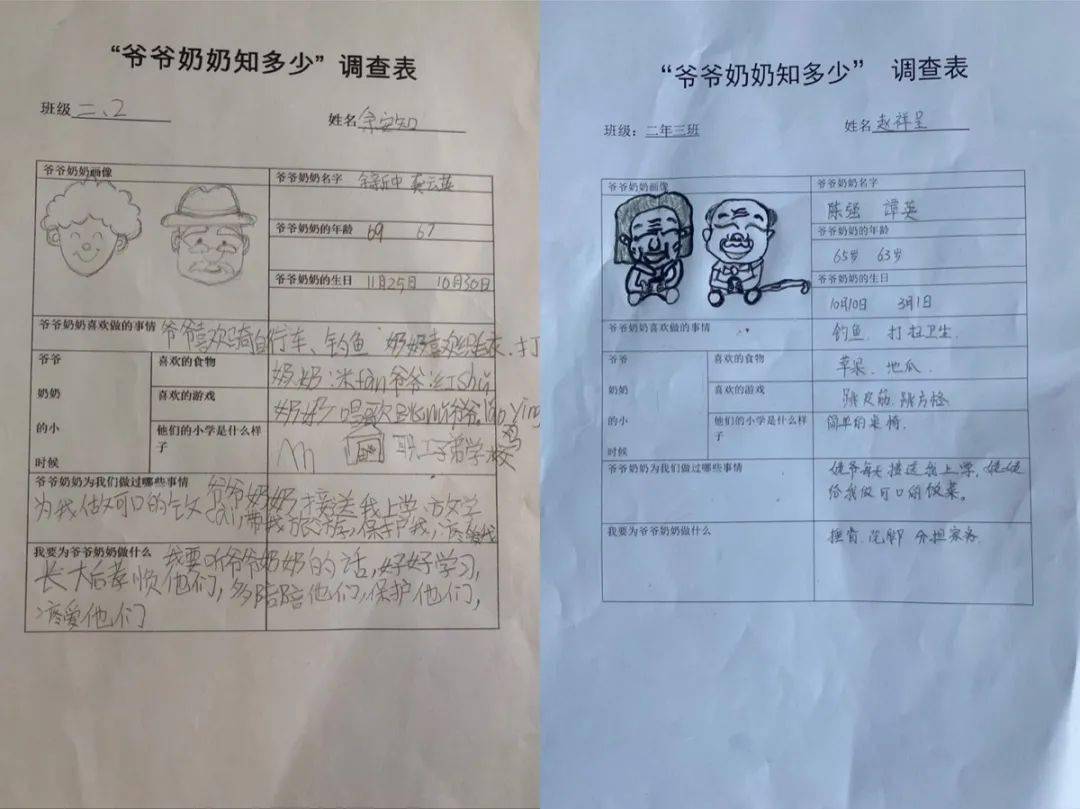 “爷爷奶奶知多少”调查表
班级 二、2
姓名 余安知
爷爷奶奶画像
爷爷奶奶名字
爷爷奶奶的年龄 69 67
爷爷奶奶的生日 11月25日 10月30日
爷爷奶奶喜欢做的事情 爷爷喜欢骑自行车、钓鱼 奶奶喜欢织毛衣、打
爷爷
奶奶
的小
时候
喜欢的食物
奶奶:米fàn 爷爷:红shǔ
喜欢的游戏
奶奶 唱歌
他们的小学是什么样子
职工子弟学校
爷爷奶奶为我们做过哪些事情
爷爷奶奶接送我上学、放学
为我做可口的
带我旅游,保护我,疼爱我
我要为爷爷奶奶做什么
我要听爷爷奶奶的话,好好学习,
长大后孝顺他们,多陪陪他们,保护他们,
疼爱他们
“爷爷奶奶知多少” 调查表
班级:二年三班
姓名 赵祥呈
爷爷奶奶画像
爷爷奶奶名字
陈强 谭英
爷爷奶奶的年龄
65岁 63岁
爷爷奶奶的生日
10月10日 3月1日
爷爷奶奶喜欢做的事情
钓鱼、打扫卫生、
爷爷
奶奶
的小
时候
喜欢的食物
苹果、地瓜、
喜欢的游戏
跳皮筋、跳方格
他们的小学是什么样子
简单的桌椅.
爷爷奶奶为我们做过哪些事情
佬爷每天接送我上学、佬佬
给我做可口的饭菜。
我要为爷爷奶奶做什么
捶背、洗脚、分担家务.